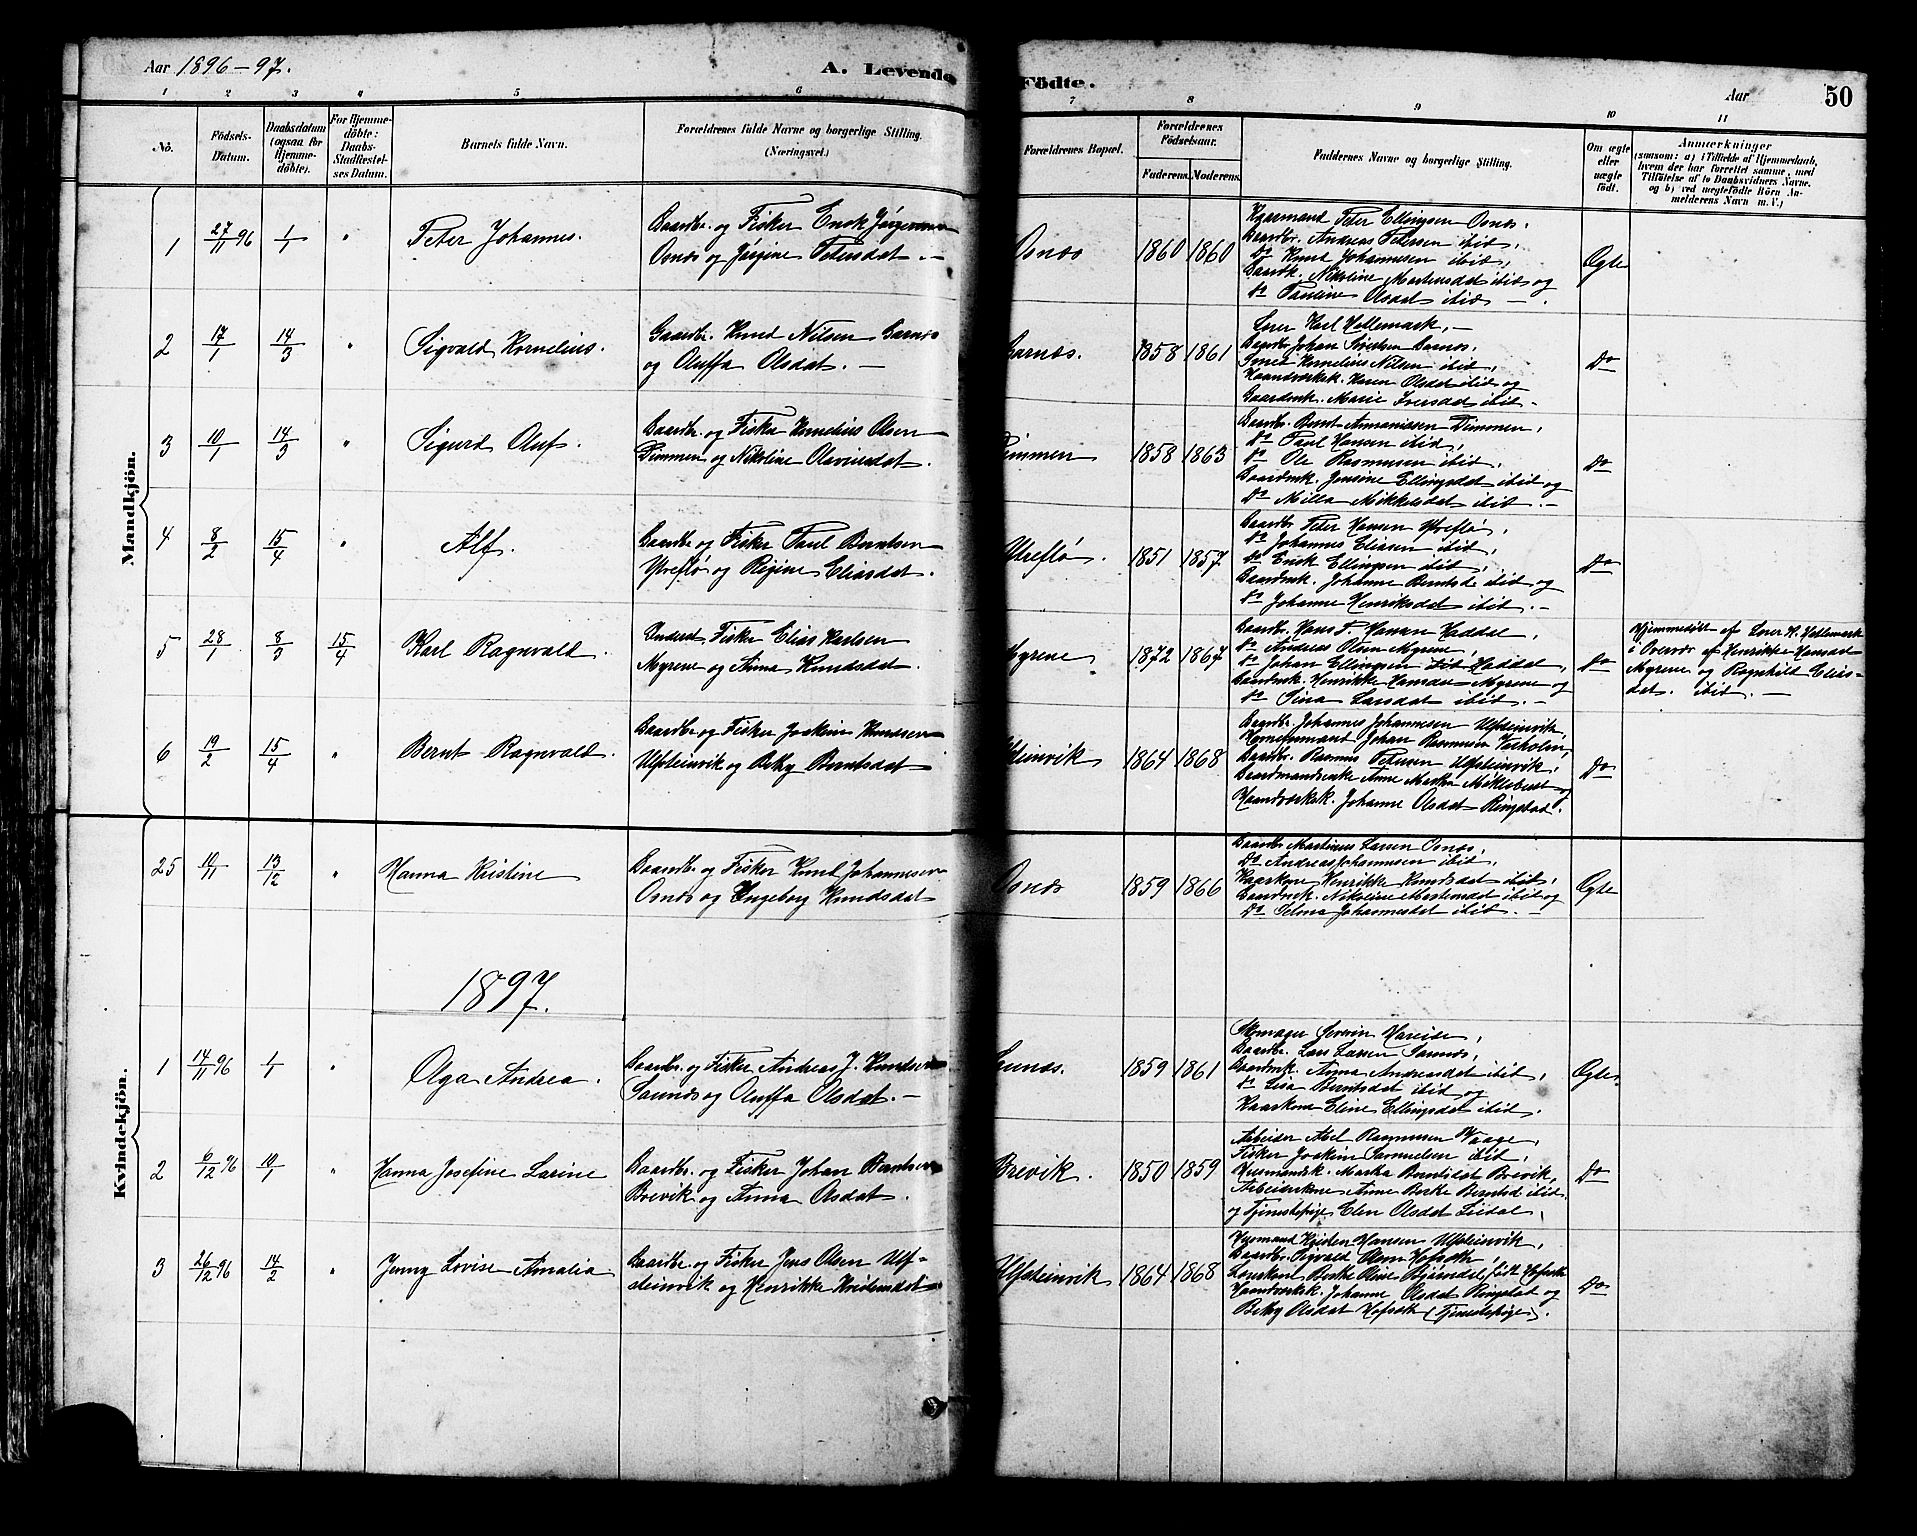 Aar 1896-97.
A. Levende Födte.
Aar
50
1 2 3 4 5 6 7 8 9 10 11
No.
Födsels-Datum.
Daabsdatum (ogsaa for Hjemmedöbte).
For Hjemmedöbte: Daabs-Stadfæstelses Datum.
Barnets fulde Navn.
Forældrenes fulde Navne og borgerlige Stilling. (Næringsvei.)
Forældrenes Bopæl.
Forældrenes Födselsaar.
Faderens. Moderens.
Faddernes Navne og borgerlige Stilling.
Om ægte eller uægte födt.
Anmærkninger
(saasom: a) i Tilfælde af Hjemmedaab, hvem der har forrettet samme, med Tilföielse af to Daabsvidners Navne, og b) ved uægtefödte Börn Anmelderens Navn m. V.)
Mandkjön.
1 27/11 96 1/1 " Peter Johannes.
Gaardbr. og Fisker Enok Jörgensen
Osnæs og Jörgine Petersdat. —
Osnæs 1860 1860
Kaarmand Peter Ellingsen Osnæs.
Gaardbr. Andreas Petersen ibid,
Do Knut Johannesen ibid,
Gaardk. Nikoline Martensdat ibid og
do Pauline Olsdat ibid —.
Ægte
2 17/1 14/3 " Sigvald Kornelius.
Gaardbr. Knud Nilsen Garnæs
og Oluffa Olsdat. —
Garnæs. 1858 1861
Lærer Karl Hellemark, —
Gaardbr Johan Sjurdsen Garnæs,
Smed Kornelius Nilsen ibid,
Haandværksk. Karen Olsdat ibid og
Gaardmk. Marie Iversdat ibid —
Do
3 10/1 14/3 " Sigurd Oluf.
Gaardbr. og Fisker Kornelius Olsen
Dimmen og Nikoline Olavinesdat.
Dimmen 1858 1863
Gaardbr. Bernt Annaniassen Dimmen,
do Paul Hansen ibid,
do Ole Rasmussen ibid,
Gaardmk. Jensine Ellingsdat ibid og
Do Milla Mikkelsdat ibid. —
Do
4 8/2 15/4 " Alf.
Gaardbr og Fisker Paul Berntsen
Ytreflø og Regine Eliasdat.
Ytreflø. 1851 1857
Gaardbr Peter Hansen Ytreflø,
do Johannes Eliasen ibid,
do Enok Ellingsen ibid,
Gaardmk. Johanne Berntsd. ibid og
do Johanne Henriksdat ibid. —
Do
5 28/1 8/3 15/4 Karl Ragnvald.
Inderst, Fisker Elias Karlsen
Myrene og Anna Knudsdat.
Myrene 1872 1867
Gaardbr. Hans P. Hansen Haddal,
do Andreas Olsen Myrene,
do Johan Ellingsen Haddal,
Gaardmk. Henrikke Hansdat Myrene og
do Sina Larsdat ibid. —
Do
Hjemmedöbt af Lærer K. Hellemark
i Overvær af Henrikke Hansdat
Myrene og Ragnhild Elias-
dat. ibid. —
6 19/2 15/4 " Bernt Ragnvald.
Gaardbr og Fisker Joakim Knudsen
Ulfsteinvik og Betzy Berntsdat
Ulfsteinvik 1864 1868
Gaardbr. Johannes Johannesen Ulfsteinvik,
Johan Rasmussen
Gaardbr. Rasmus Petersen Ulfsteinvik,
Gaardmandsenke Anne Martha Mikkelsdat og
Haandværksk. Johanne Olsdat Ringstad.
Do
Kvindekjön.
25 10/11 13/12 " Hanna Kristine
Gaardbr. og Fisker Knut Johannesen
Osnæs og Ingeborg Knudsdat
Osnæs 1859 1866
Gaardbr Martinus Larsen Osnæs,
Do Andreas Johannesen ibid,
Kaarkone Henrikke Knudsdat ibid,
Gaardmk. Nikoline Martensdat ibid og
Do Selma Johannesdat ibid. —
Ægte
1897.
1 14/11 96 1/1 " Olga Andrea.
Gaardbr. og Fisker Andreas J. Knudsen
Saunæs og Oluffa Olsdat. —
Saunæs. 1859 1861
Skomager Severin Hareide,
Gaardbr. Lars Larsen Saunæs,
Gaardmk. Anna Andreasdat ibid,
do Lisa Berntsdat ibid og
Kaarkone Eline Ellingsdat ibid.
Ægte
2 6/12 96 10/1 " Hanna Josefine Larine
Gaardbr. og Fisker Johan Berntsen
Brevik og Anna Olsdat.
Brevik. 1850 1859
Arbeider Abel Rasmussen Waage,
Fisker Joakim Samuelsen ibid,
Husmandsk. Martha Berntsdat Brevik,
Arbeiderkone Anne Berte Berntsd ibid
og Tjenestepige Elen Olsdat Leidal.
Do
3 26/12 96 14/2 " Jenny Lovise Amalia
Gaardbr. og Fisker Jens Olsen Ulf-
steinvik og Henrikke Kristensdat
Ulfsteinvik 1864 1868
Husmand Kristen Hansen Ulfsteinvik,
Gaardbr. Sigvald Olsen Hofseth
Berthe Oline født Hofseth
Haandværksk. Johanne Olsdat Ringstad og
Betzy Olsdat Hofseth (Tjenestepige).
Do